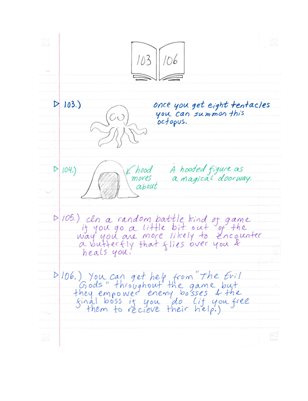 103 106
▷ 103.) once you get eight tentacles
you can summon this
octopus.
▷ 104.) hood
moves
about
A hooded figure as
a magical doorway.
▷ 105.) In a random battle kind of game
if you go a little bit out of
the way you are more likely to encounter
a butterfly that flies over you &
heals you.
▷ 106.) You can get help from "The Evil
Gods" throughout the game but
they empower enemy bosses & the
final boss if you do (if you free
them to recieve their help.)